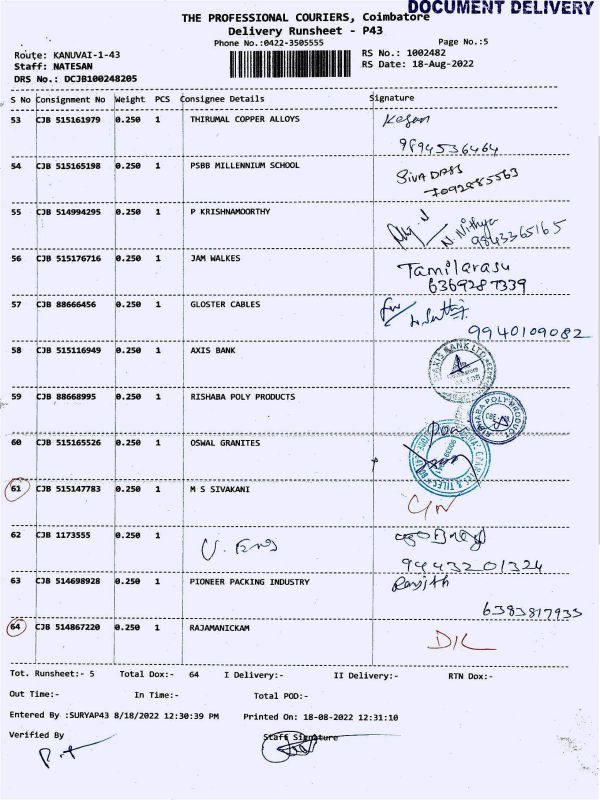 DOCUMENT DELIVERY
THE PROFESSIONAL COURIERS, Coimbatore
Delivery Runsheet - P43
Phone No.:0422-3505555 Page No.:5
Route: KANUVAI-1-43 RS No.: 1002482
Staff: NATESAN RS Date: 18-Aug-2022
DRS No.: DCJB100248205
S No Consignment No Weight PCS Consignee Details Signature
53 CJB 515161979 0.250 1 THIRUMAL COPPER ALLOYS
9894536464
54 CJB 515165198 0.250 1 PSBB MILLENNIUM SCHOOL SIVADASS
7092885563
55 CJB 514994295 0.250 1 P KRISHNAMOORTHY N Nithya
9843365165
56 CJB 515176716 0.250 1 JAM WALKES Tamilarasu
6369287339
57 CJB 88666456 0.250 1 GLOSTER CABLES for
9940109082
58 CJB 515116949 0.250 1 AXIS BANK AXIS BANK LTD
59 CJB 88668995 0.250 1 RISHABA POLY PRODUCTS RISHABA POLY PRODUCT
60 CJB 515165526 0.250 1 OSWAL GRANITES
61 CJB 515147783 0.250 1 M S SIVAKANI
62 CJB 1173555 0.250 1
9443201324
63 CJB 514698928 0.250 1 PIONEER PACKING INDUSTRY Ranjith
6383817935
64 CJB 514867220 0.250 1 RAJAMANICKAM D/L
Tot. Runsheet:- 5 Total Dox:- 64 I Delivery:- II Delivery:- RTN Dox:-
Out Time:- In Time:- Total POD:-
Entered By :SURYAP43 8/18/2022 12:30:39 PM Printed On: 18-08-2022 12:31:10
Verified By Staff Signature